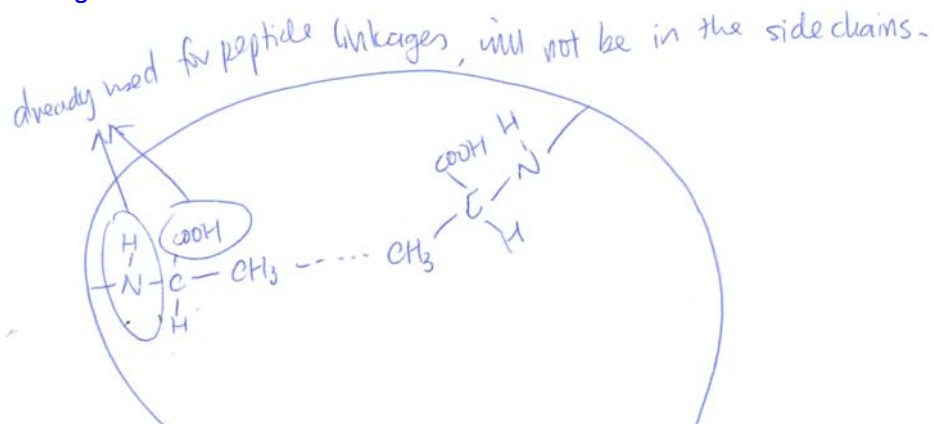 already used for peptide linkages, will not be in the side chains.
COOH H
N
H COOH C
N C CH3 CH3 H
H